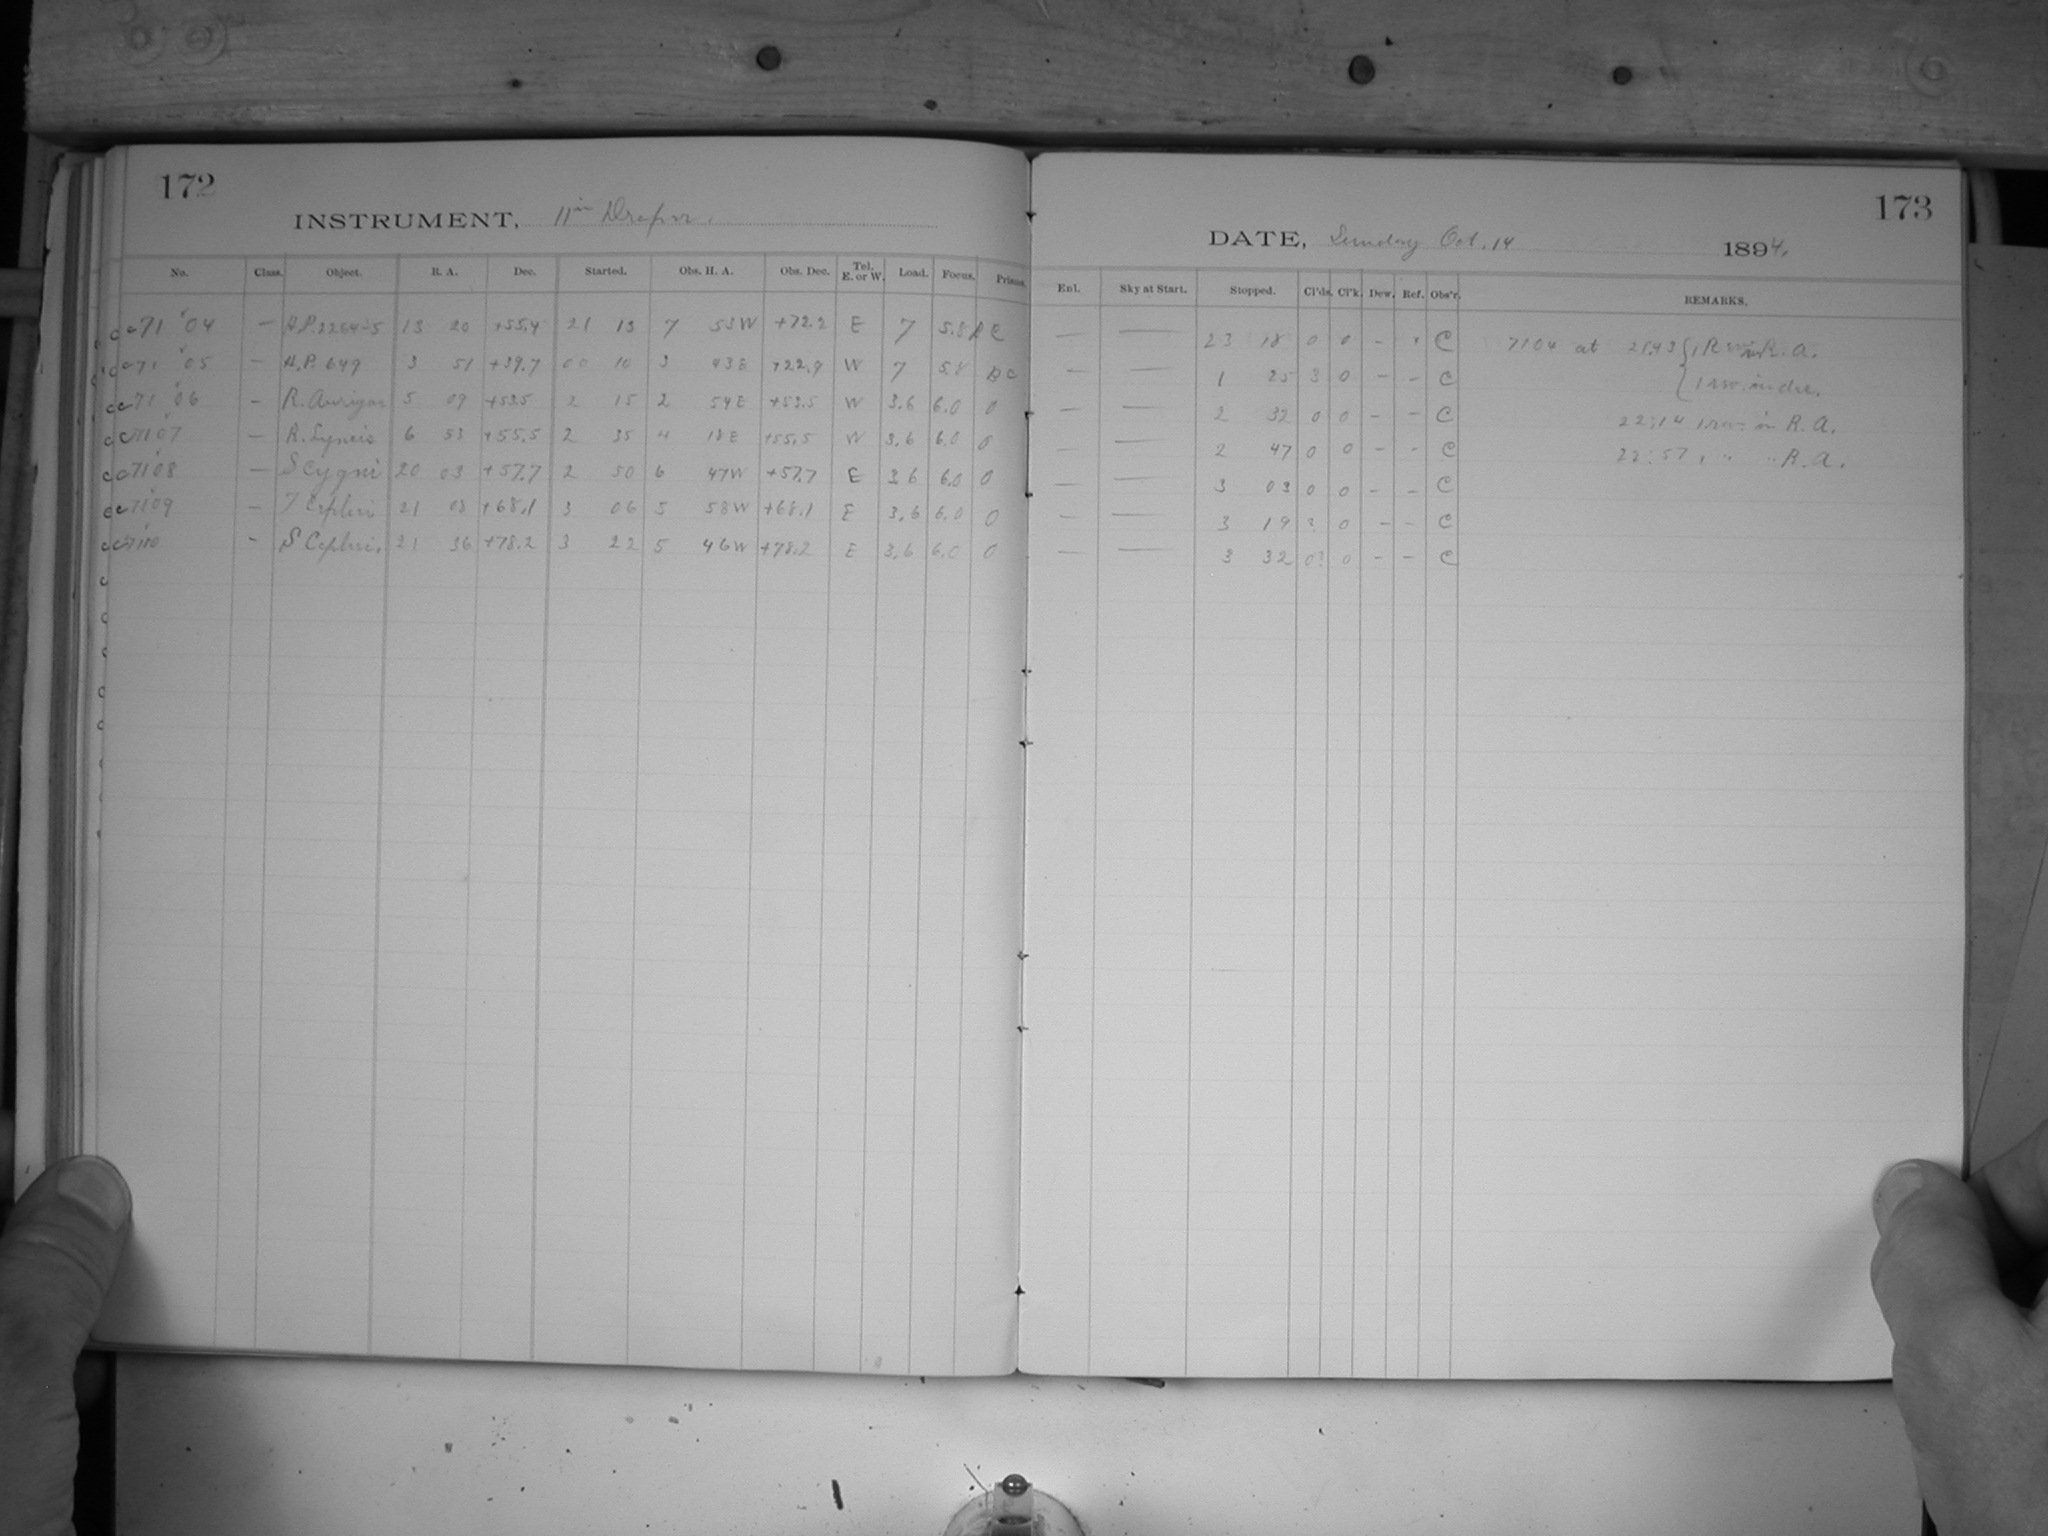 172
INSTRUMENT, 11 in Draper.
No. Class. Object. R. A. Dec. Started. Obs. H. A. Obs. Dec. Tel. E. or W. Load. Focus. Prisms.
7104 — H.P. 2264-5 13 20 +55.4 21 13 7 53W +72.2 E 7 5.8 C
7105 — H.P. 649 3 51 +39.7 00 10 3 43E +22.9 W 7 5.8 BC
7106 — R. Aurigae 5 09 +53.5 2 15 2 54E +53.5 W 3.6 6.0 0
7107 — R. Lyncis 6 53 +55.5 2 35 4 18E +55.5 W 3.6 6.0 0
7108 — S Cygni 20 03 +57.7 2 50 6 47W +57.7 E 3.6 6.0 0
7109 — T Cephei 21 08 +68.1 3 06 5 58W +68.1 E 3.6 6.0 0
7110 - S Cephei. 21 36 +78.2 3 22 5 46W +78.2 E 3.6 6.0 0
173
DATE, Sunday Oct. 14 1894.
Enl. Sky at Start. Stopped. Cl'ds. Cl'k. Dew. Ref. Obs'r. REMARKS.
— — 23 18 0 0 - C 7104 at 21.43 { 1 Rev. in R. A.
— — 1 25 3 0 - - C { 1 rev. in dec.
— — 2 32 0 0 - - C 22:14 1 rev. in R. A.
— — 2 47 0 0 - - C 22:57 " " R. A.
— — 3 03 0 0 - - C
— — 3 19 0 - - C
— — 3 32 0? 0 - - C